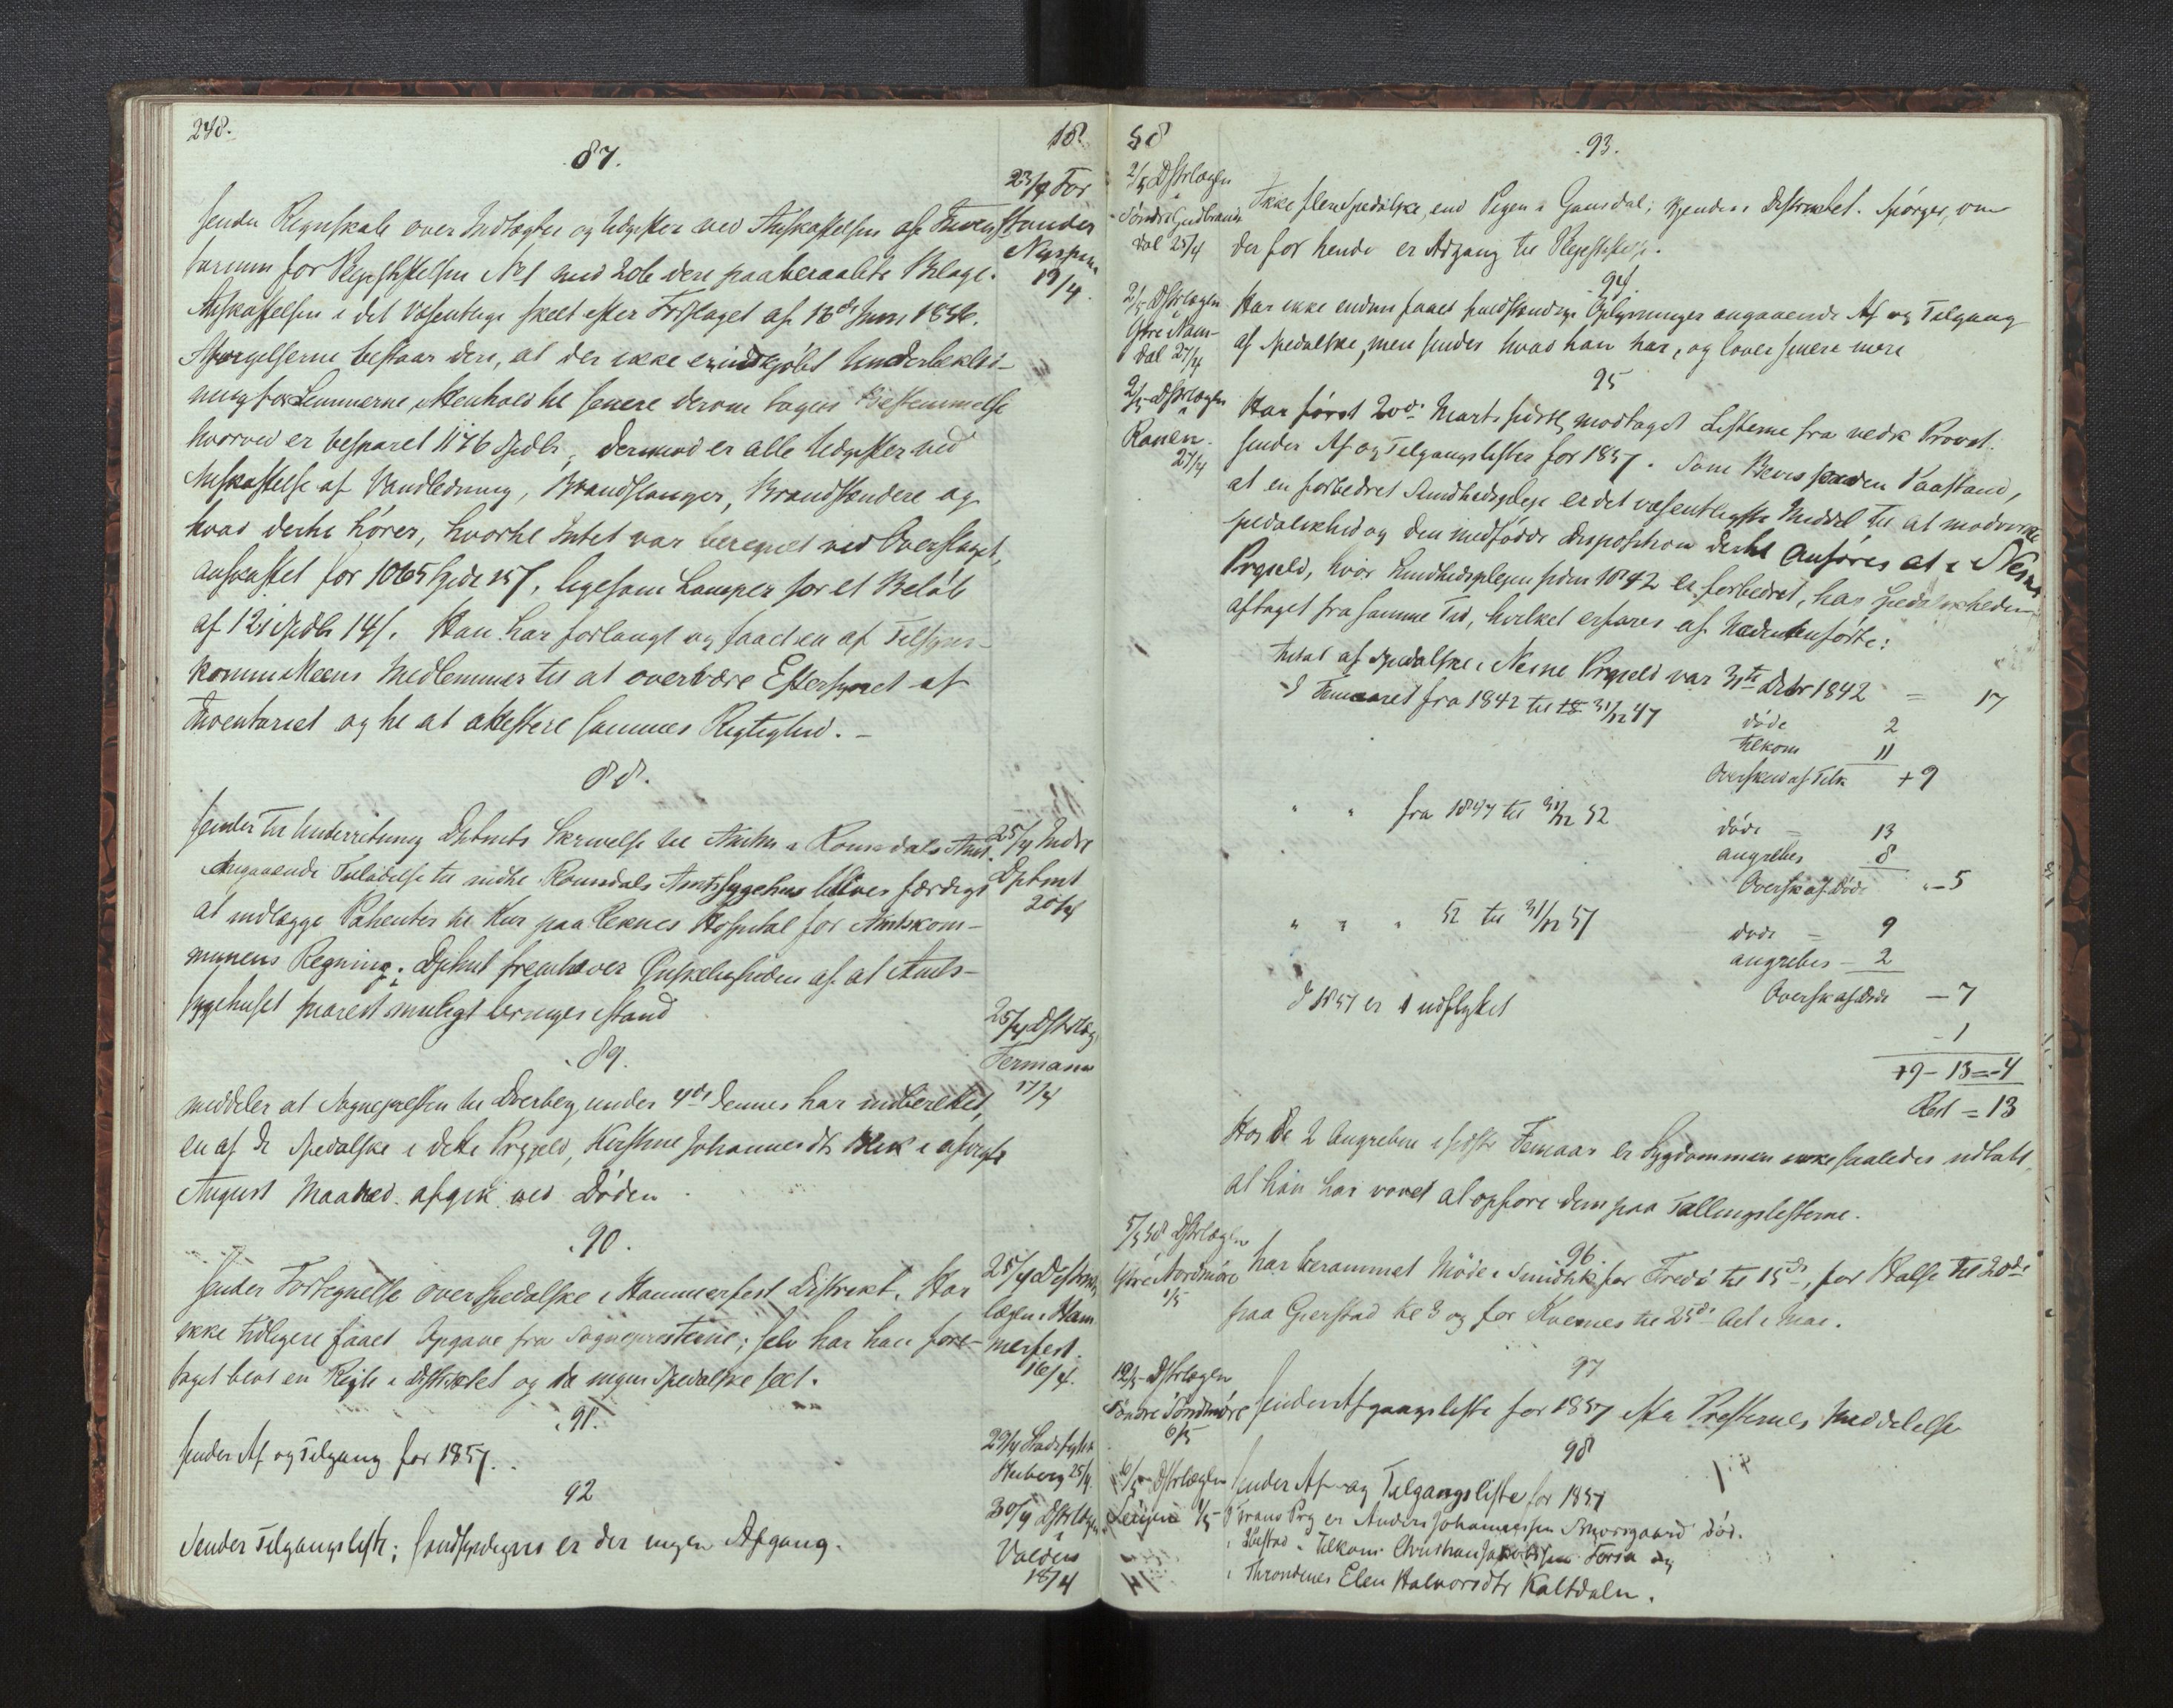 248.
18
87.
23/4 For
sender Regnskab over Indtægter og Udgifter ved Anskaffelsen af Inven-
stander
tarium for Plejestiftelsen No 1 med 206 dere paaberaabte Bilage.
19/4
Anskaffelsen i det Væsentlige skeet efter Forslaget af 18de Juni 1856.
Afvigelserne bestaar deri, at der ikke er indkjøbt Underklæd-
ning for Lemmerne, Henhold til senere derom tagen Bestemmelse
hvorved er besparet 1176 Spdlr, derimod er alle Udgifter ved
Anskaffelse af Vandledning, Brandslanger, Brandspandere og
hvad dertil hører, hvortil Intet var beregnet ved Overslaget,
anskaffet for 1065 Spd 15 s, ligesom Lamper for et Beløb
af 121 Spdlr 14 s. Han har forlangt og faaet en af Tilsyns-
kommiteens Medlemmer til at overvære Eftersynet af
Inventariet og til at attestere sammes Rigtighed. –
88.
25/4 Indre
sender til Underretning Dptmts Skrivelse til Amtm i Romsdals Amt
Angaaende Tilladelse til indtil Romsdals Amtssygehus bliver færdigt
Dptmt
20/4
at indlægge Patienter til Kur paa Reknes Hospital for Amtskom-
munens Regning; Dptmt fremhæver Ønskeligheden af at Amts-
sygehuset snarest muligt bringes istand
25/4 Dstrlæg
89.
Fermann
17/4
meddeler at Sognepresten til Dverberg under 4de dennes har indberettet,
en af de Spedalske i dette Prgjeld, Kirstine Johannesdtr Blek i afvigte
August Maaned afgik ved Døden.
90.
25/4 Distrikts
sender Fortegnelse over Spedalske i Hammerfest Distrikt. Har
lægen i Ham
ikke tidligere faaet Opgave fra Sognepresterne; selv har han fore-
merfest.
16/4.
taget blot en Reise i Distriktet og da ingen Spedalske seet.
91.
sender Af og Tilgang for 1857.
29/4 Stadsfysik
25/4.
92
30/4 Dstrlægen
Sender Tilgangsliste; sandsynligvis er der ingen Afgang.
i
Valders
18/4
58
93.
2/5 Dstrlægen
i
Søndre Gudbrands
dal 25/4
Ikke flere Spedalske, end Pigen i Gausdal; kjendes i Distriktet. Spørger, om
der for hende er Adgang til Plejestiftelse.
94.
2/5 Dstrlægen
Ytre Nam-
dal 27/4
Har ikke endnu faaet fuldstændige Oplysninger angaaende Af og Tilgang
af Spedalske, men sender hvad han har, og lover senere mere
95
2/5 Dstrlægen
i
Ranen.
27/4
Har først 20de Marts sidstl. modtaget Listerne fra vedk Provst.
sender Af og Tilgangslister for 1857. Som Bevis paa den Paastand,
at en forbedret Sundhedspleje er det væsentligste Middel til at modvirke
spedalskhed og den medfødte Disposition dertil anføres at i Nesne
Prgjeld, hvor Sundhedsplejen siden 1842 er forbedret, har Spedalskheden
aftaget fra samme Tid, hvilket erfares af Nedenanførte:
Antal af Spedalske i Nesne Prgjeld var 31te Decbr 1842 = 17
I Femaaret fra 1842 til 31/12 47
døde 2
tilkom 11
Overskud af Tilk +9
" " fra 1847 til 31/12 52
døde = 13
angrebes 8
Oversk af Døde – 5
" " " 52 til 31/12 57
døde = 9
angrebes – 2
Oversk af Døde – 7
I 1857 er 1 udflyttet
– 1
+9 – 13 = –4
Rest = 13
Hos de 2 Angrebne i sidste Femaar er Sygdommen ikke saaledes udtalt,
at han har vovet at opføre dem paa Tællingslisterne.
5/5 58 Dstrlægen
Ytre Nordmøre
1/5
96.
har berammet Møde i Smidtvik for Fredø til 15de, for Halse til 20de
paa Gjerstad Kl 3 og for Kvernes til 25de Alt i Mai.
97
12/5 Dstrlægen
Søndre Søndmøre
6/5
sender Afgangsliste for 1857 efter Presternes Meddelelse
98
Dstrlægen
Senjen 1/5
sender Af og Tilgangsliste for 1857
I Tranø Prg er Anders Johannessen død.
i Ibestad – Tilkom: Christian og
i Throndenes Elen Halvorsdtr Kaltdaln.